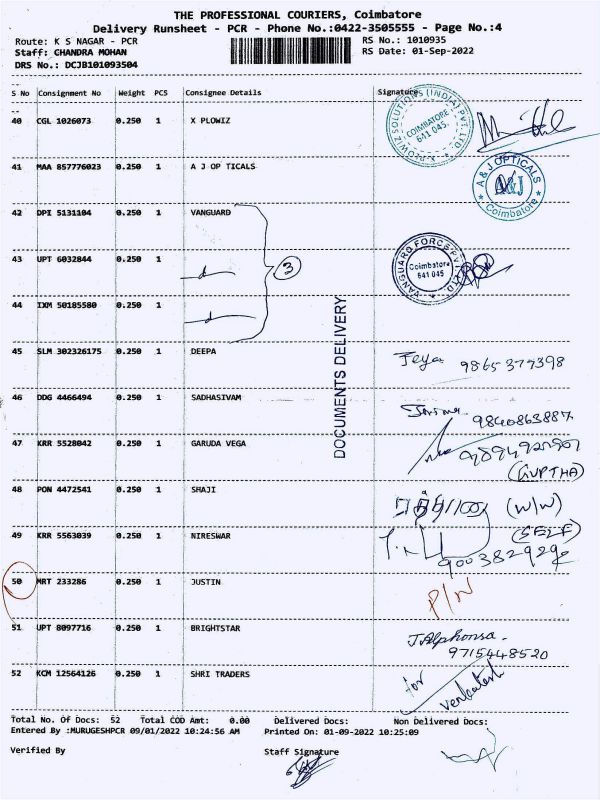 THE PROFESSIONAL COURIERS, Coimbatore
Delivery Runsheet - PCR - Phone No.:0422-3505555 - Page No.:4
Route: K S NAGAR - PCR RS No.: 1010935
Staff: CHANDRA MOHAN RS Date: 01-Sep-2022
DRS No.: DCJB101093504
S No Consignment No Weight PCS Consignee Details Signature
40 CGL 1026073 0.250 1 X PLOWIZ
X-PLOWIZ SOLUTIONS (INDIA) PVT. LTD.
COIMBATORE
641 045.
41 MAA 857776023 0.250 1 A J OP TICALS
A & J OPTICALS
A&J
Coimbatore
42 DPI 5131104 0.250 1 VANGUARD
43 UPT 6032844 0.250 1
3
VANGUARD FORCE PVT. LTD.
Coimbatore
641 045
44 IXM 50185580 0.250 1
DOCUMENTS DELIVERY
45 SLM 302326175 0.250 1 DEEPA Jeya 9865377398
46 DDG 4466494 0.250 1 SADHASIVAM 9840863887
47 KRR 5528042 0.250 1 GARUDA VEGA
(GUPTHA)
48 PON 4472541 0.250 1 SHAJI (W/W)
49 KRR 5563039 0.250 1 NIRESWAR (SELF)
50 MRT 233286 0.250 1 JUSTIN P/N
51 UPT 8097716 0.250 1 BRIGHTSTAR J.Alphonsa.
9715448520
52 KCM 12564126 0.250 1 SHRI TRADERS for
venkatesh
Total No. Of Docs: 52 Total COD Amt: 0.00 Delivered Docs: Non Delivered Docs:
Entered By :MURUGESHPCR 09/01/2022 10:24:56 AM Printed On: 01-09-2022 10:25:09
Verified By Staff Signature